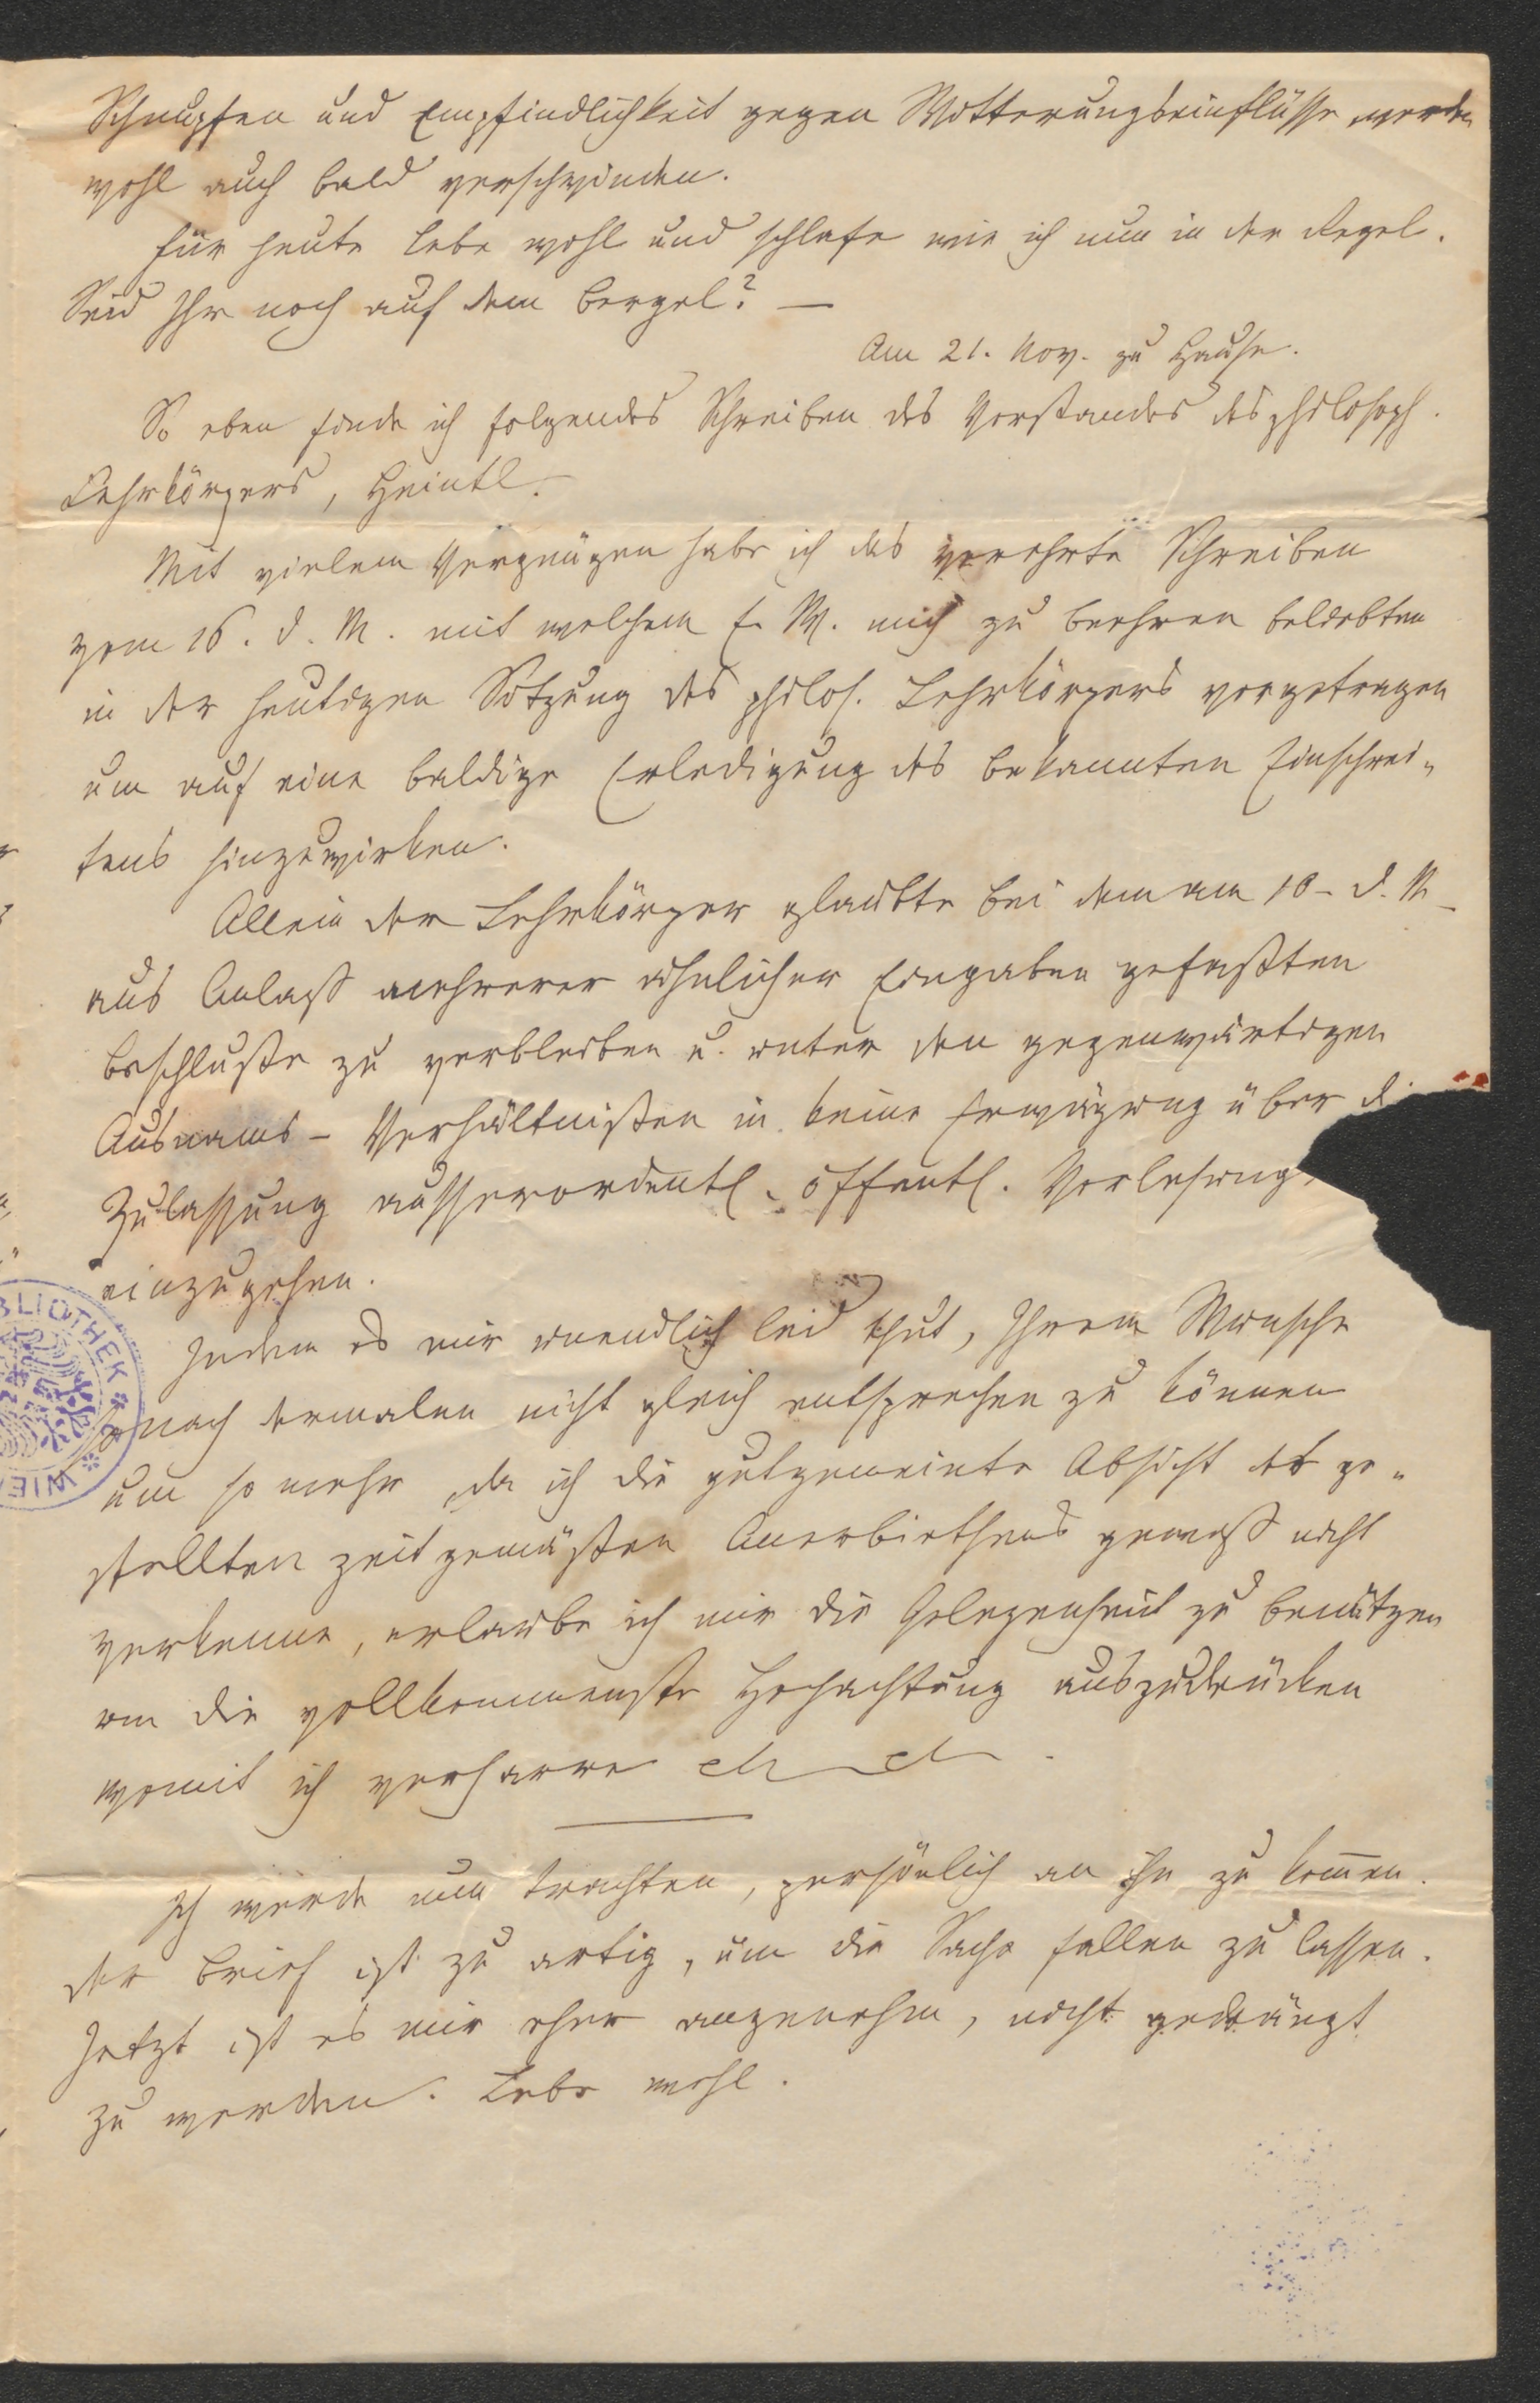 Schnupfen und Empfindlichkeit gegen Witterungseinflüsse werden
wohl auch bald verschwinden.
Für heute lebe wohl und schlafe wie ich nun in der Regel.
Seid Ihr noch auf dem Bergel? —
Am 21. Nov. zu Hause.
So eben finde ich folgendes Schreiben des Vorstandes des philosoph.
Lehrkörpers, Heintl.
Mit vielem Vergnügen habe ich das verehrte Schreiben
vom 16. d. M. mit welchem E. W. mich zu beehren beliebten
in der heutigen Sitzung des philos. Lehrkörpers vorgetragen
um auf eine baldige Erledigung des bekannten Einschrei-
tens hinzuwirken.
Allein der Lehrkörper glaubte bei dem am 10. d. M.
aus Anlaß mehrerer ähnlicher Eingaben gefaßten
Beschluße zu verbleiben u. unter den gegenwärtigen
Ausnams-Verhältnißen in keine Erwägung über di
Zulassung ausserordentl. öffentl. Vorlesung
einzugehen.
Indem es mir unendlich leid thut, Ihrem Wunsche
sonach dermalen nicht gleich entsprechen zu können
um so mehr da ich die gutgemeinte Absicht des ge-
stellten zeitgemäßen Anerbiethens gewiß nicht
verkenne, erlaube ich mir die Gelegenheit zu benützen
um die vollkommenste Hochachtung auszudrücken
womit ich verharre etc etc.
Ich werde nun trachten, persönlich an ihn zu kom̄en.
Der Brief ist zu artig, um die Sache fallen zu lassen.
Jetzt ist es mir eher angenehm, nicht gedrängt
zu werden. Lebe wohl.
BLIOTHEK
WIE